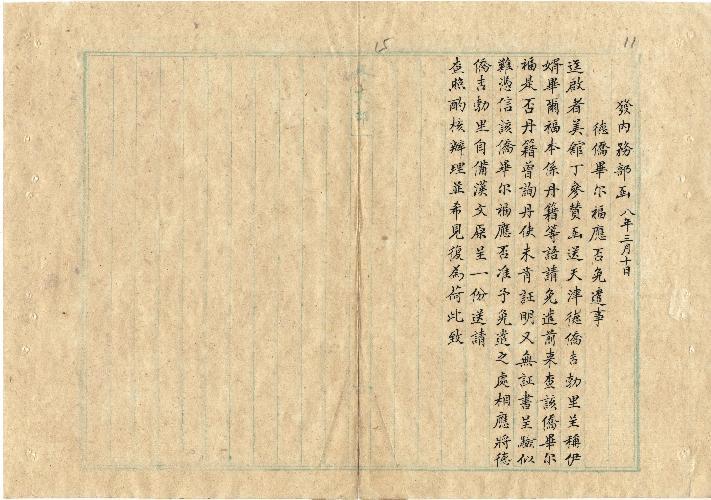 11
15
發內務部函 八年三月十日
德僑畢尔福應否免遣事
逕啟者美館丁參贊函送天津德僑吉勃里呈稱伊
婿畢爾福本係丹籍等語請免遣前來查該僑畢尔
福是否丹籍曾詢丹使未肯証明又無証書呈驗似
難憑信該僑畢尔福應否准予免遣之處相應將德
僑吉勃里自備漢文原呈一份送請
查照酌核辦理並希見復為荷此致